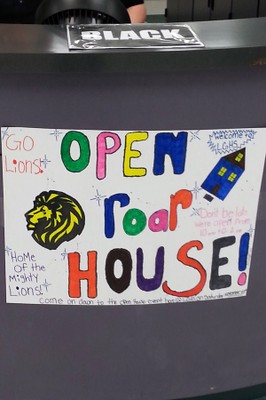 BLACK
GO
Lions!
OPEN
Welcome to
LGHS
roar
Don't be late
HOUSE!
Home
Of the
Mighty
Lions!
come on down to the open house